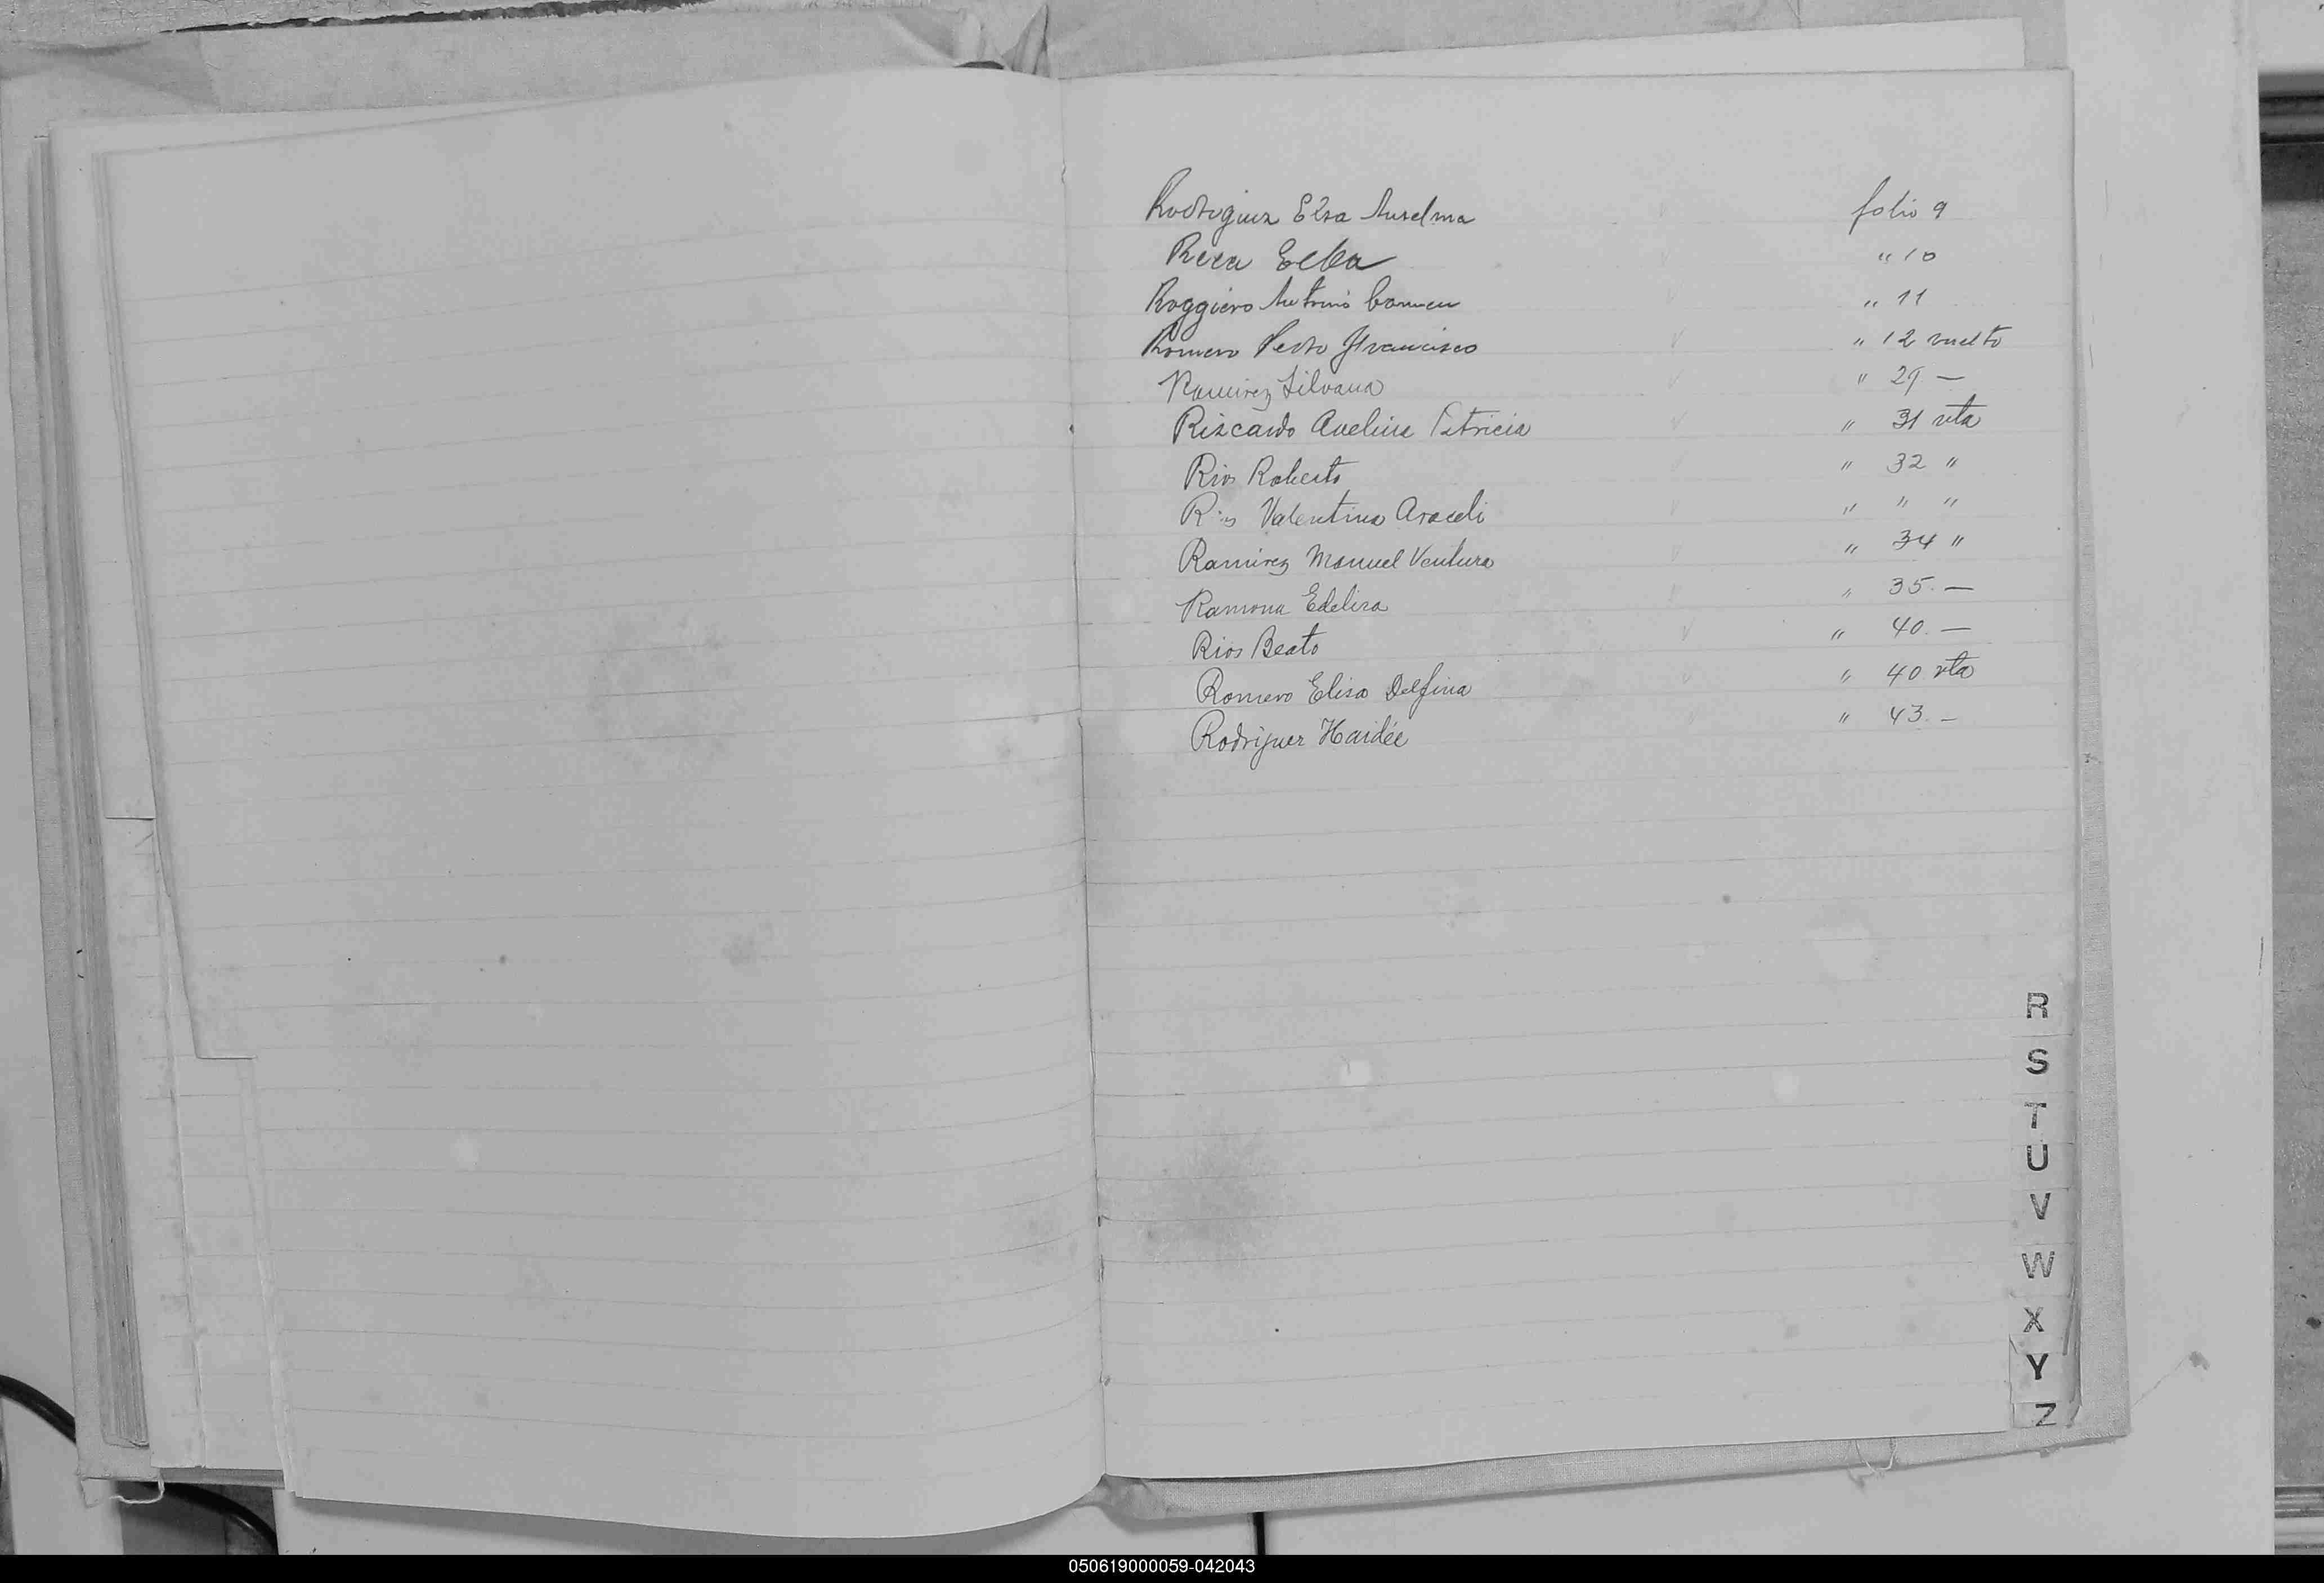 Rodriguez Elsa Anselma folio 9
Reca Elba " 10
Roggiero Antonio Carmen " 11
Romero Pedro Francisco " 12 vuelto
Ramirez Silvana " 29 —
Rizcardo Avelina Patricia " 31 vta
Rios Roberto " 32 "
Rios Valentina Araceli " " "
Ramirez Manuel Ventura " 34 "
Ramona Edelira " 35. —
Rios Beato " 40. —
Romero Elisa Delfina " 40 vta
Rodriguez Haidée " 43. —
R
S
T
U
V
W
X
Y
Z
050619000059-042043